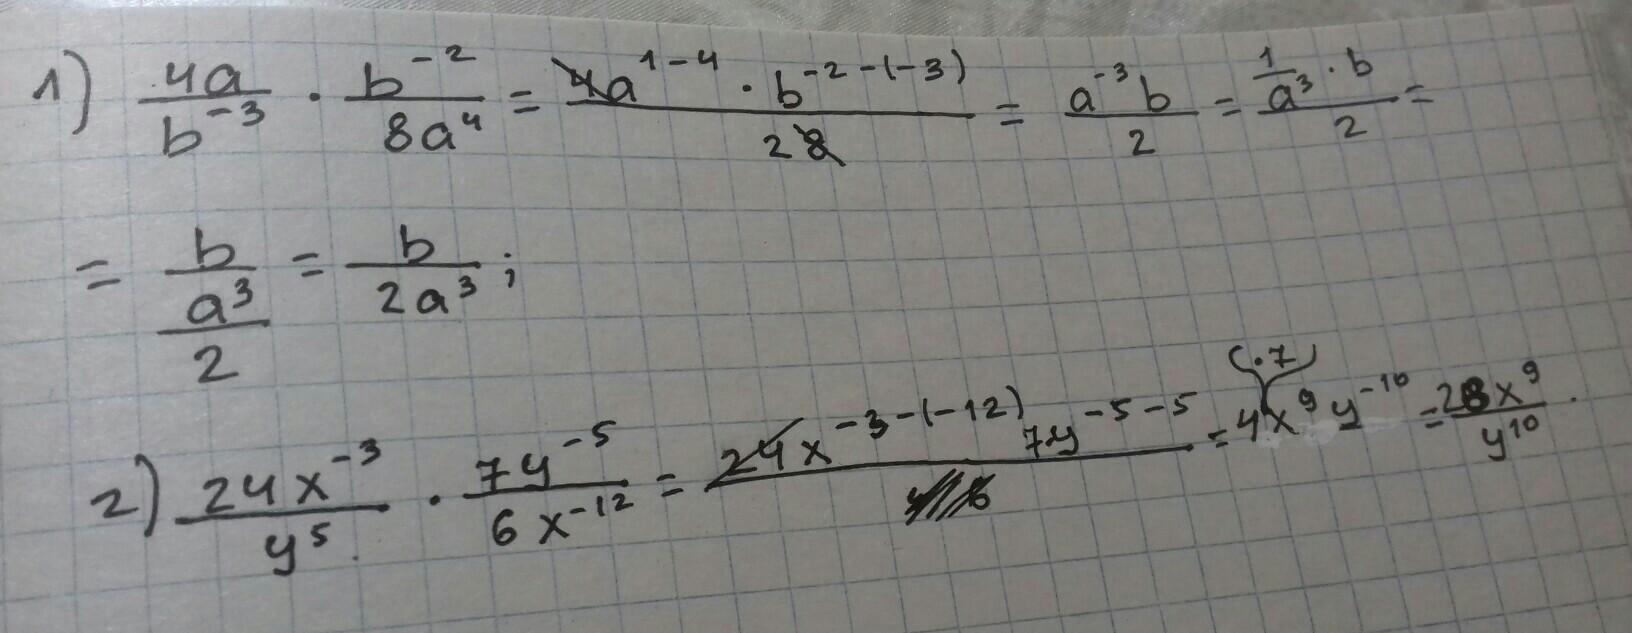 1) 4a/b⁻³ · b⁻²/8a⁴ = 4a¹⁻⁴ · b⁻²⁻⁽⁻³⁾/28 = a⁻³b/2 = 1/a³ · b/2 =
= b/a³/2 = b/2a³ ;
2) 24x⁻³/y⁵ · 7y⁻⁵/6x⁻¹² = 24x⁻³⁻⁽⁻¹²⁾ 7y⁻⁵⁻⁵/6 = 4(·7)x⁹y⁻¹⁰ = 28x⁹/y¹⁰ .